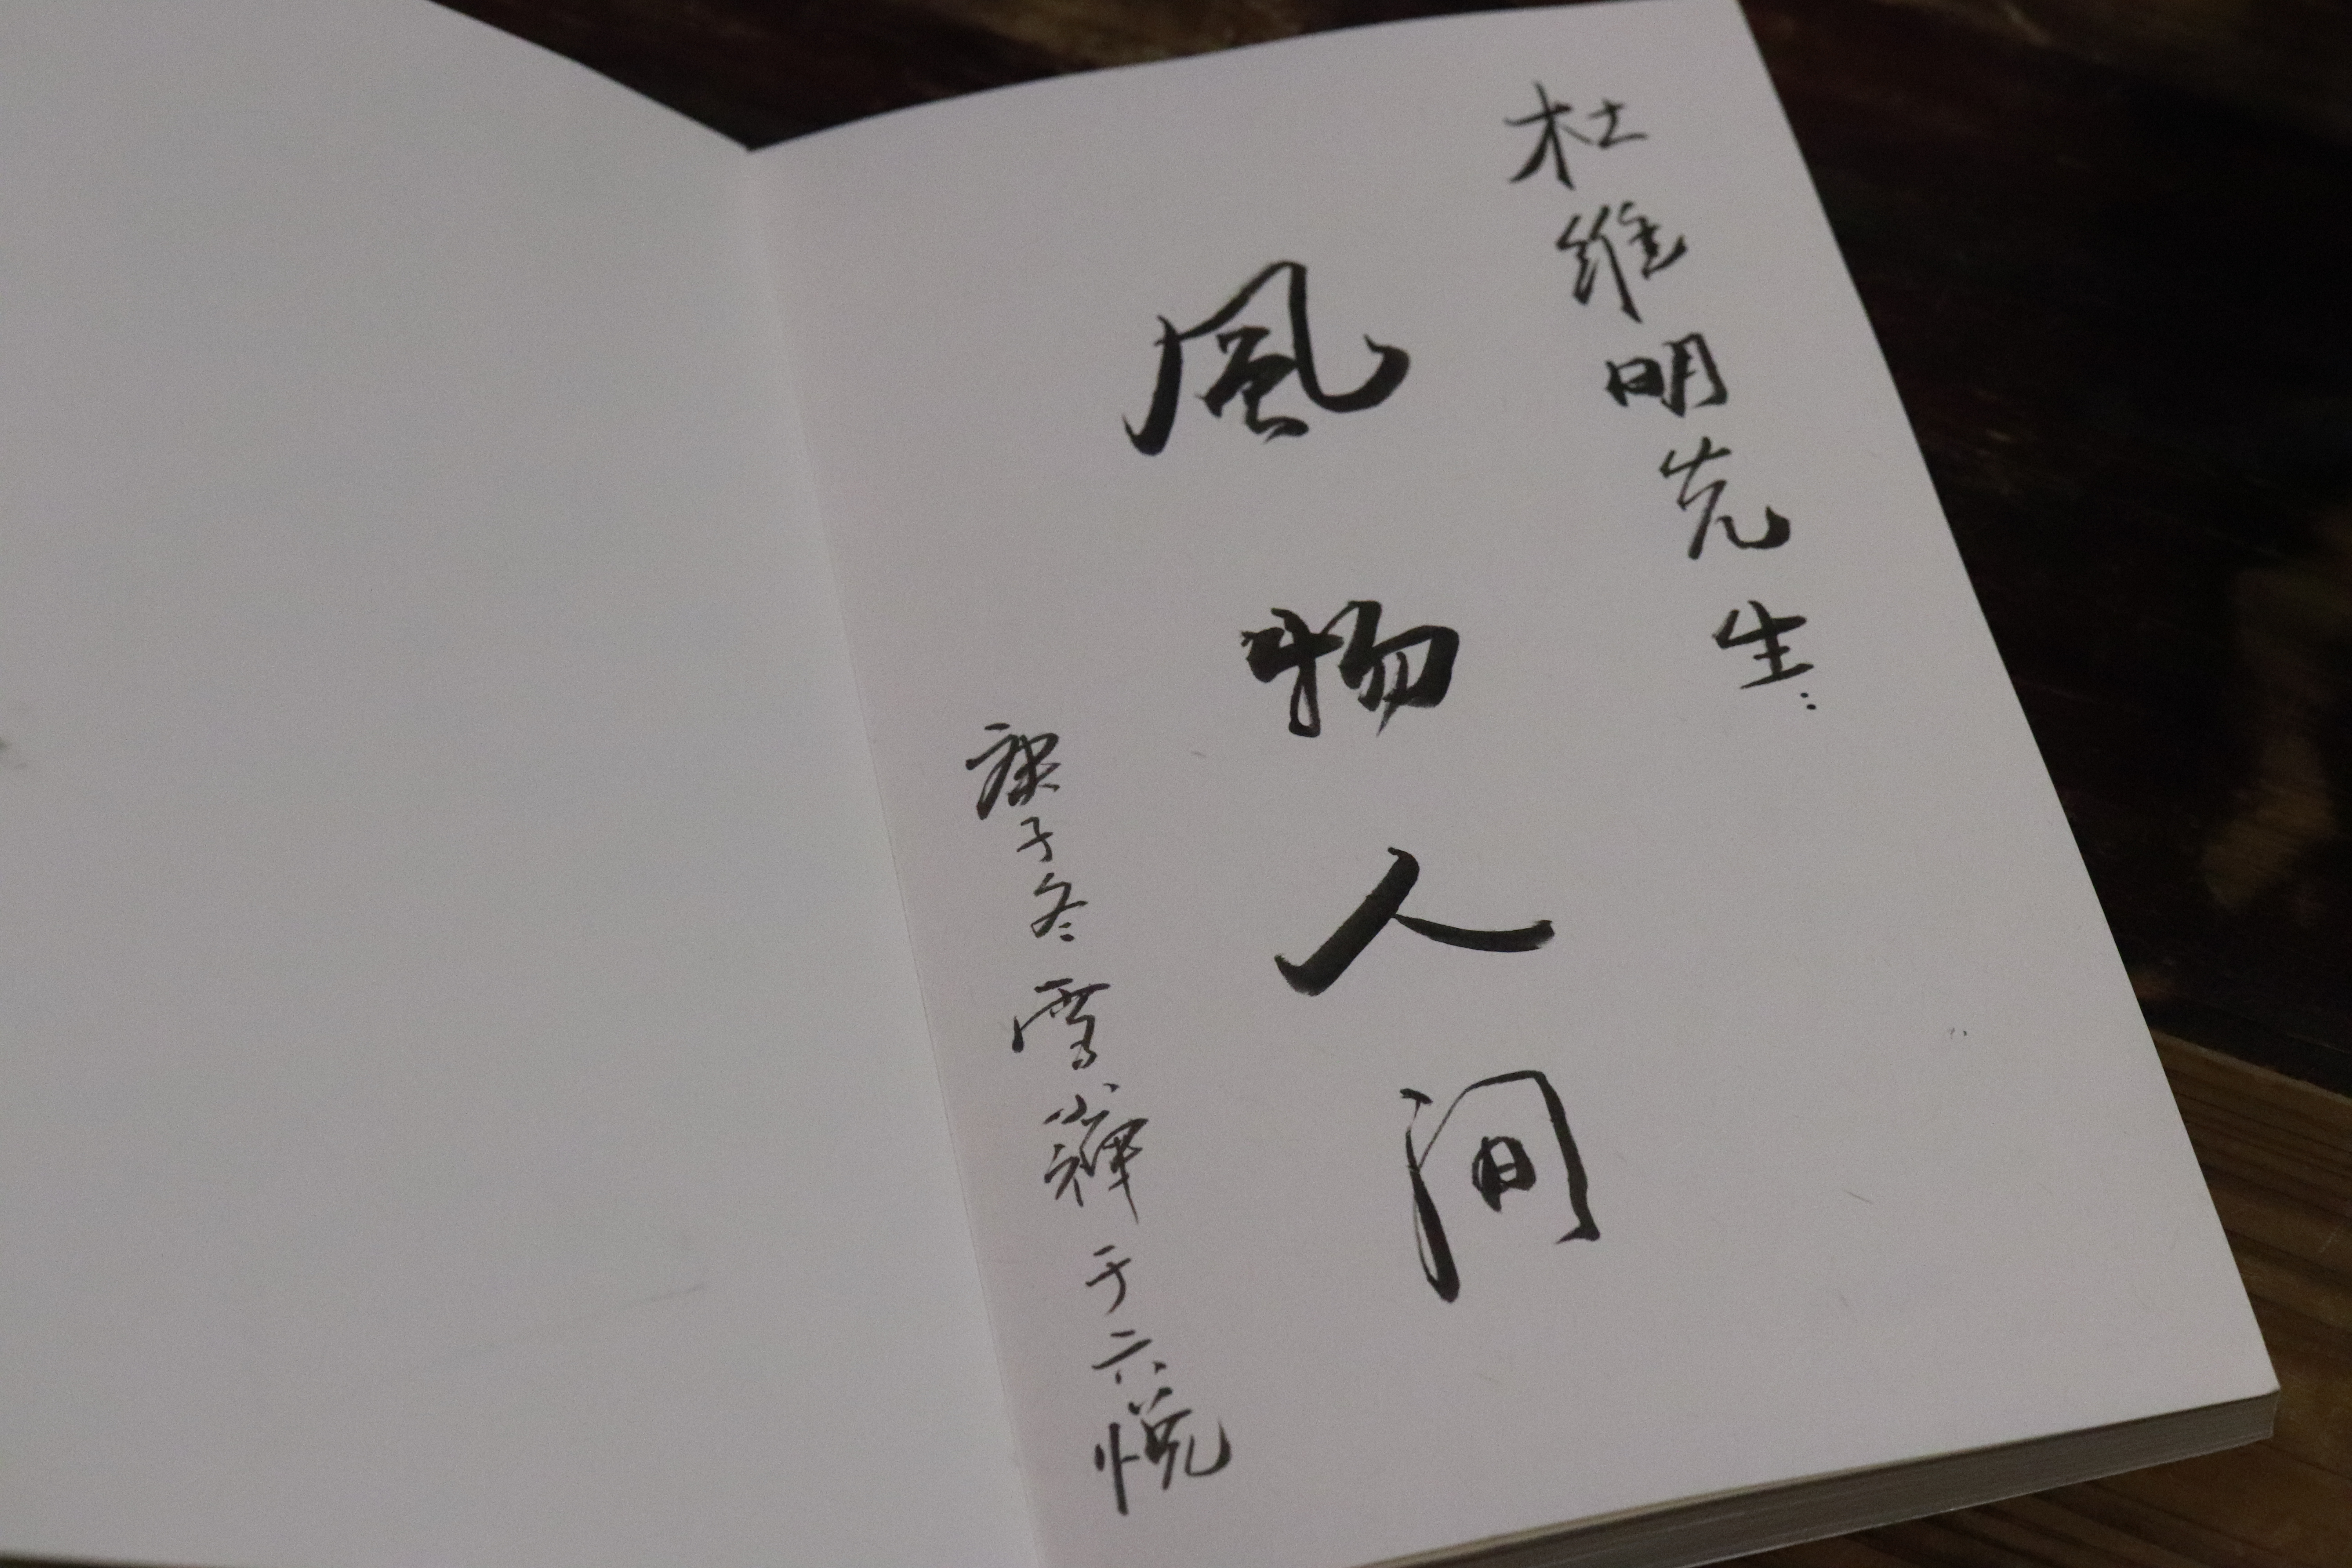 杜维明先生：
風物人间
庚子冬雪 于六悦